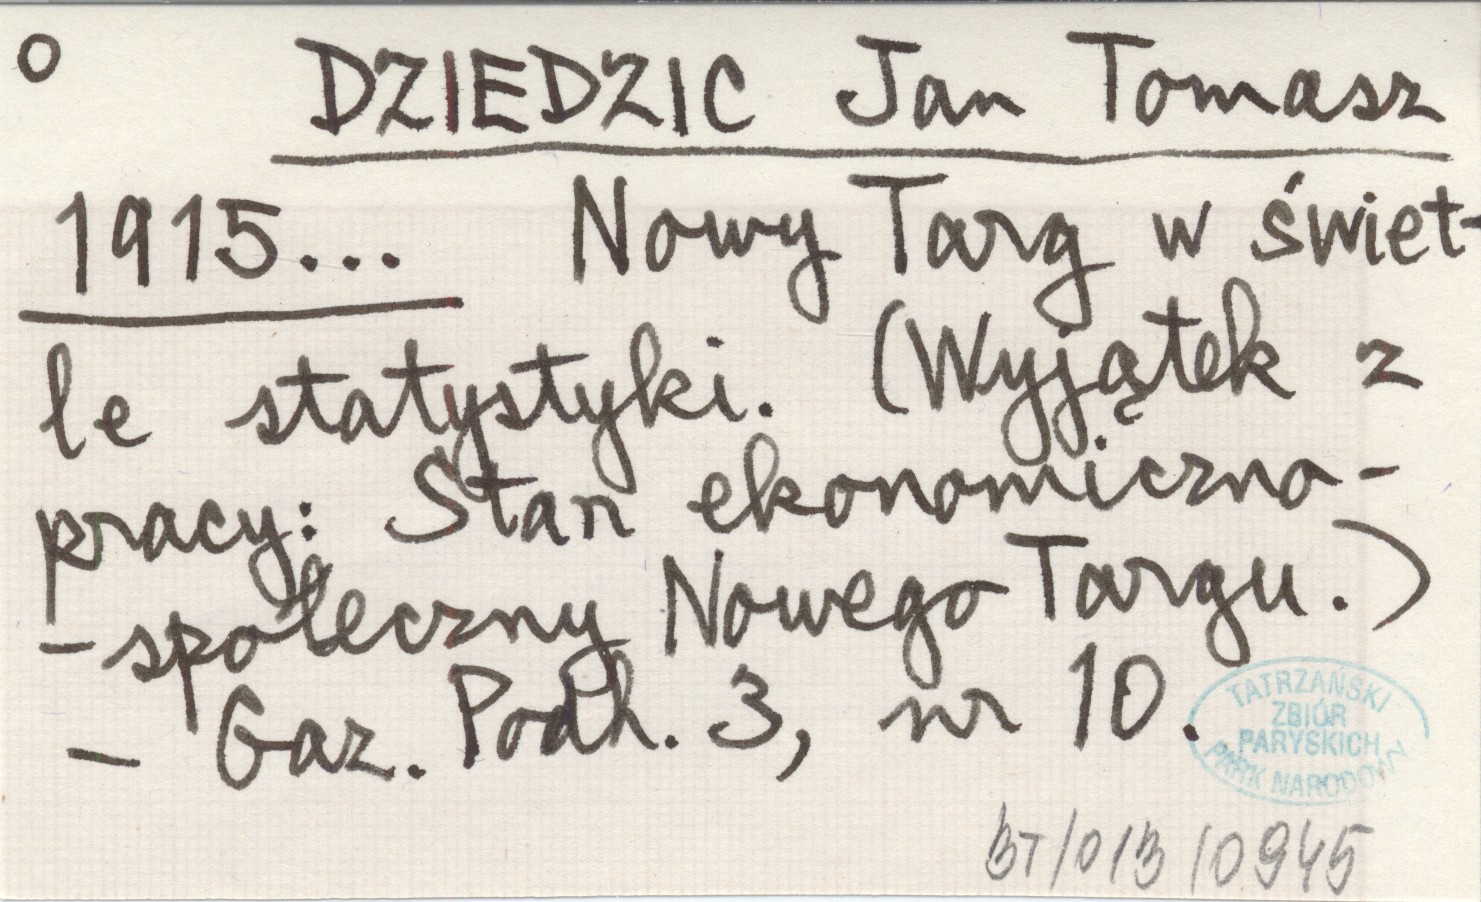 o DZIEDZIC Jan Tomasz
1915... Nowy Targ w świet-
le statystyki. (Wyjątek z
pracy: Stan ekonomiczno-
-społeczny Nowego Targu.)
- Gaz. Podh. 3, nr 10.
TATRZAŃSKI
ZBIÓR
PARYSKICH
PARK NARODOWY
BT/013/0945